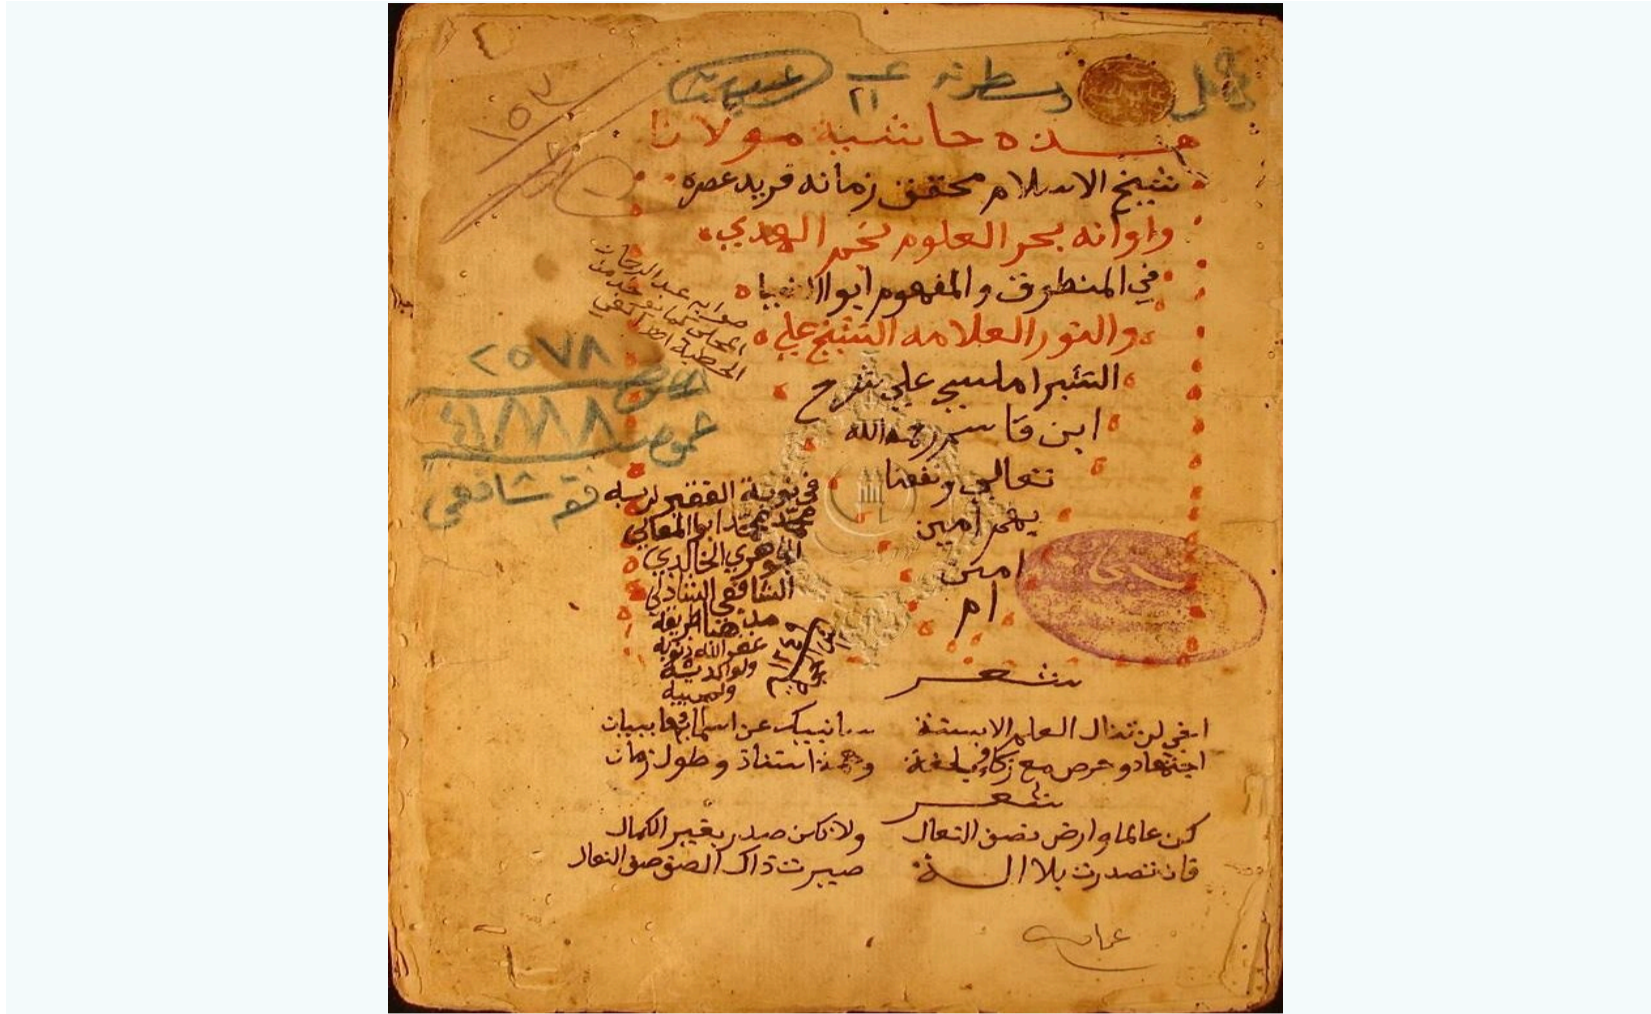 ومسطرته عـــ ٢١
١٥٣
هذه حاشية مولانا
شيخ الاسلام محقق زمانه فريد عصره
واوانه بحر العلوم نجم الهدي
في المنطوق والمفهوم ابوا الضيا
والنور العلامه الشيخ علي
الشبراملسي علي شرح
ابن قاسم رحمه الله
تعالي ونفعنا
بهم امين
امين
ام
صوابه عبد الرحمان
المحلي كما
الخطبة
٢٥٧٨
خصوص
عموم ٤١٨٨٨
فقه شافعي
في نوبة الفقير لربه
محمد محمد ابو المعالي
الجوهري الخالدي
الشافعي الشاذلي
طريقة
غفر الله ذنوبه
ولوالديه
ولمحبيه
شعر
اخي لن تنال العلم الا بستة سانبيك عن اسمائها ببيان
اجتهاد وحرص مع زكاء وبلغة وهمة استاذ وطول زمان
شعر
كن عالما وارض بصف النعال ولا تكن صدر بغير الكمال
فان تصدرت بلا الة صيرت ذاك الصف صف النعال